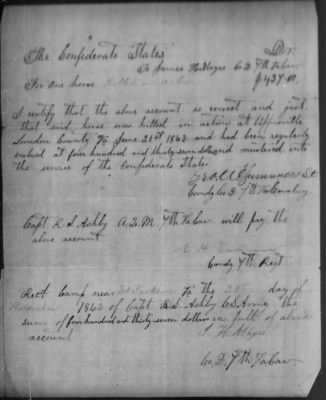 The Confederate States Dr.
To James H. Hayes Co D 7th Va Cav
For one horse killed in action $437.00
I certify that the above account is correct and just
that said horse was killed in action at Upperville
Loudon County Va June 21st 1863 and had been regularly
valued at four hundred and thirty seven dollars and mustered into
the service of the Confederate States
Lt
Comdg Co D 7th Va Cavalry
Capt. L. S. Ashby A.Q.M. 7th Va Cav will pay the
above account
Comdg 7th Regt
Recd Camp near Va the day of
1863 of Capt. L. S. Ashby C.S. Army the
sum of four hundred and thirty seven dollars in full of above
account
Co. D. 7th Va Cav